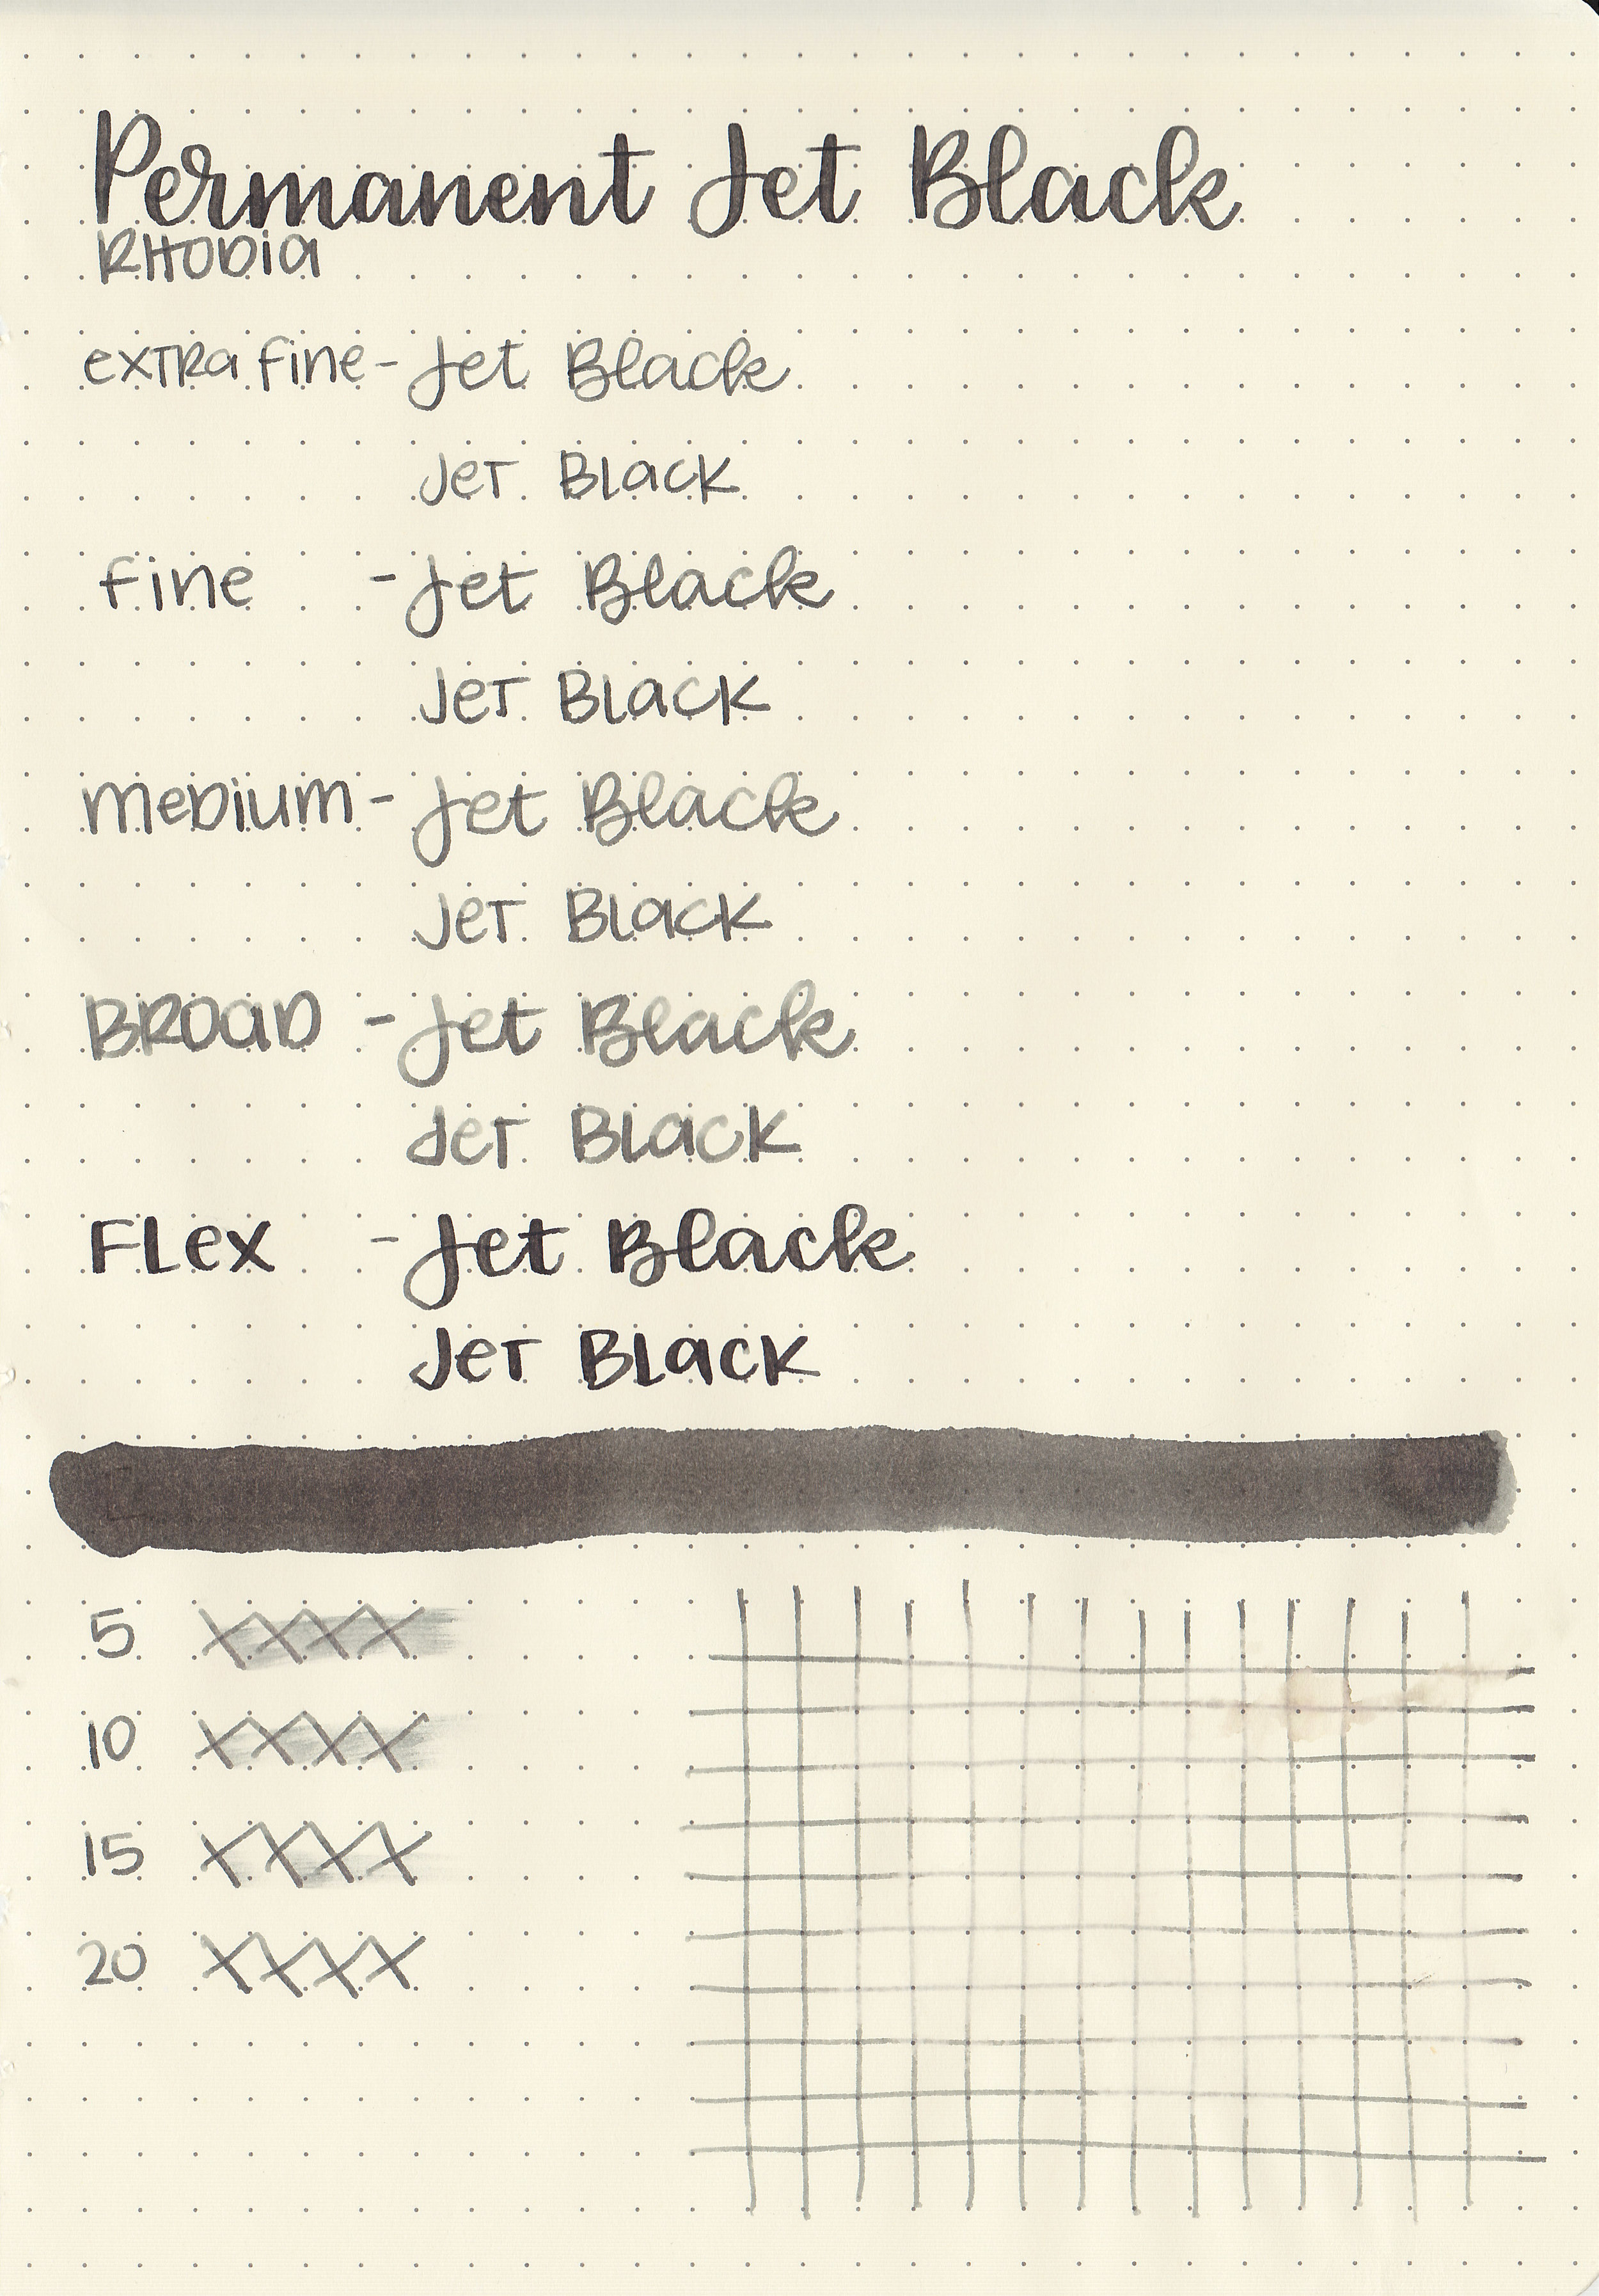 Permanent Jet Black
RHODia
exTRa fine - Jet Black
JeT BLack
fine - Jet Black
JeT BLack
meDium - Jet Black
JeT BLack
BROaD - Jet Black
JeT BLack
FLex - Jet Black
JeT BLack
5 XXXX
10 XXXX
15 XXXX
20 XXXX